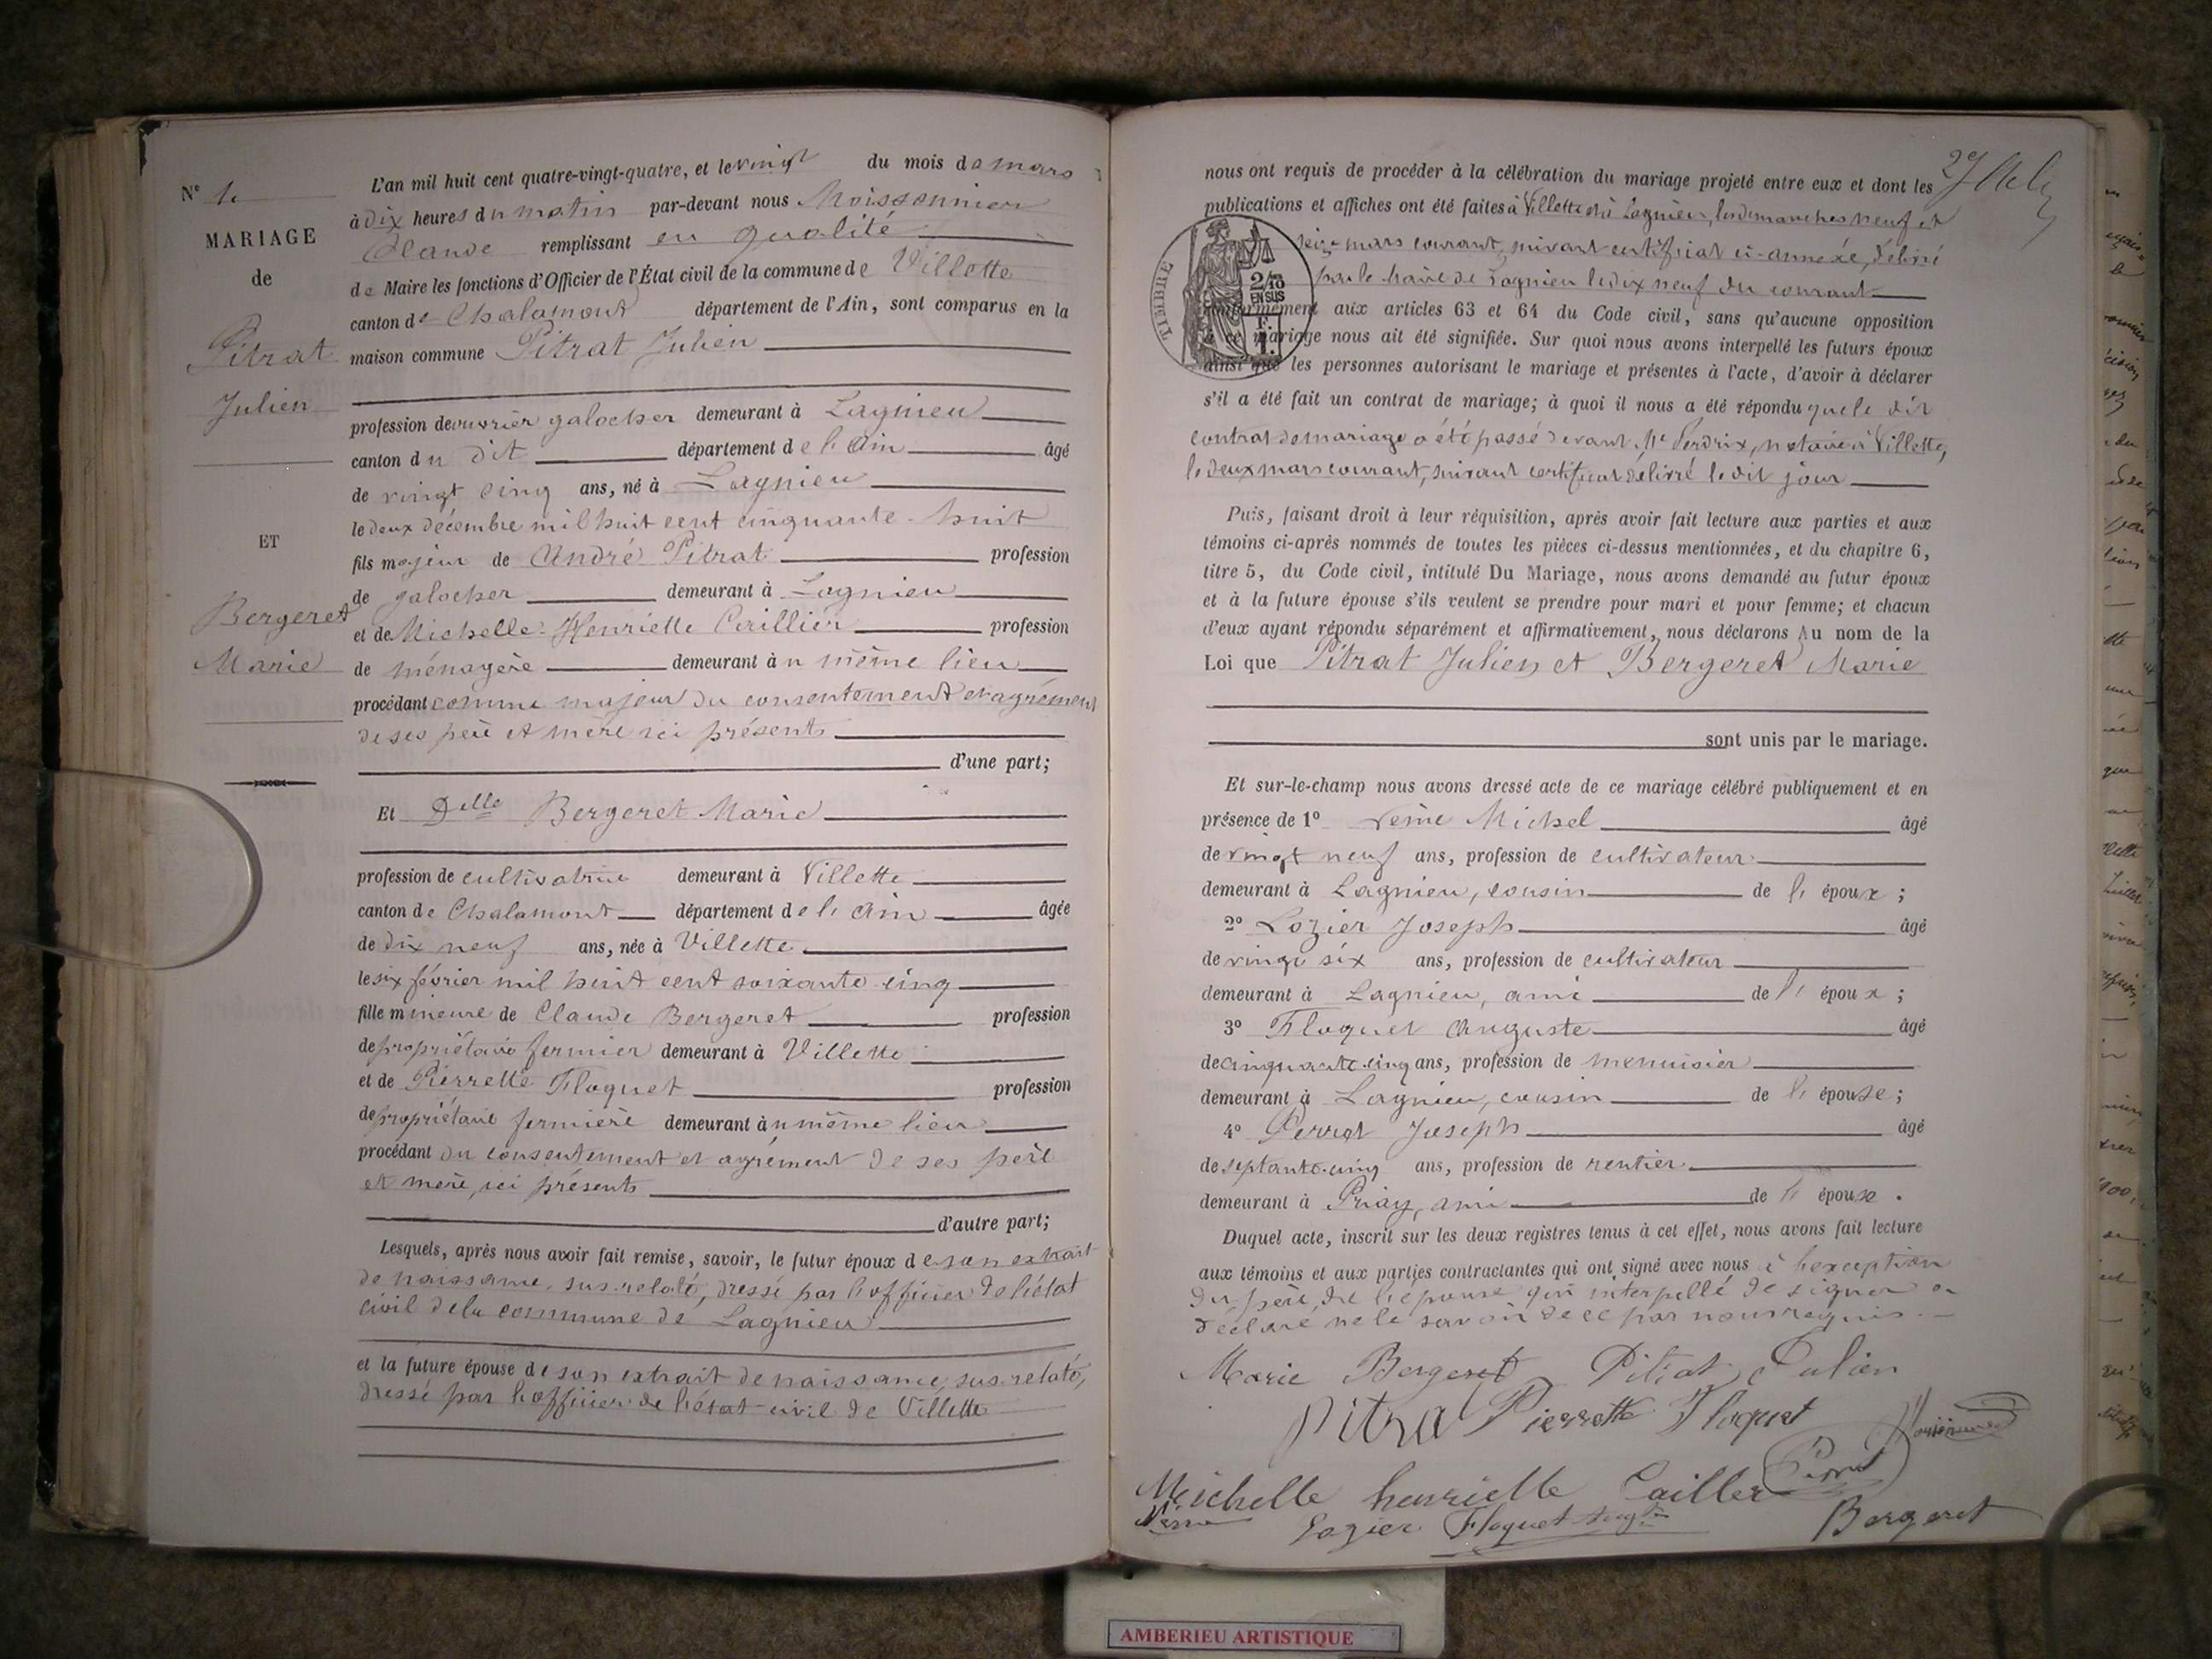 N° 1.
MARIAGE
de
Pitrat
Julien
ET
Bergeret
Marie
L'an mil huit cent quatre-vingt-quatre, et le vingt du mois de mars
à dix heures du matin par-devant nous Moissonnier
Claude remplissant en qualité
de Maire les fonctions d'Officier de l'État civil de la commune de Villette
canton de Chalamont département de l'Ain, sont comparus en la
maison commune Pitrat Julien
profession de ouvrier galocher demeurant à Lagnieu
canton du dit département de l'Ain âgé
de vingt cinq ans, né à Lagnieu
le deux décembre mil huit cent cinquante-huit
fils majeur de André Pitrat profession
de galocher demeurant à Lagnieu
et de Michelle-Henriette Caillier profession
de ménagère demeurant à u même lieu
procédant comme majeur du consentement et agrément
de ses père et mère ici présents
d'une part;
Et Delle Bergeret Marie
profession de cultivatrice demeurant à Villette
canton de Chalamont département de l'Ain âgée
de dix neuf ans, née à Villette
le six février mil huit cent soixante-cinq
fille mineure de Claude Bergeret profession
de propriétaire fermier demeurant à Villette
et de Pierrette Floquet profession
de propriétaire fermière demeurant à u même lieu
procédant du consentement et agrément de ses père
et mère, ici présents
d'autre part;
Lesquels, après nous avoir fait remise, savoir, le futur époux de son extrait
de naissance, sus-relaté, dressé par l'officier de l'état
civil de la commune de Lagnieu
et la future épouse de son extrait de naissance, sus-relaté,
dressé par l'officier de l'état-civil de Villette
nous ont requis de procéder à la célébration du mariage projeté entre eux et dont les
publications et affiches ont été faites à Villette et à Lagnieu, les dimanches neuf et
seize mars courant, suivant certificat ci-annexé, délivré
par le Maire de Lagnieu le dix neuf du courant
conformément aux articles 63 et 64 du Code civil, sans qu'aucune opposition
à ce mariage nous ait été signifiée. Sur quoi nous avons interpellé les futurs époux
ainsi que les personnes autorisant le mariage et présentes à l'acte, d'avoir à déclarer
s'il a été fait un contrat de mariage; à quoi il nous a été répondu que le dit
contrat de mariage a été passé devant Me Perdrix, notaire à Villette,
le deux mars courant, suivant certificat délivré le dit jour
TIMBRE
2/10
EN SUS
Puis, faisant droit à leur réquisition, après avoir fait lecture aux parties et aux
témoins ci-après nommés de toutes les pièces ci-dessus mentionnées, et du chapitre 6,
titre 5, du Code civil, intitulé Du Mariage, nous avons demandé au futur époux
et à la future épouse s'ils veulent se prendre pour mari et pour femme; et chacun
d'eux ayant répondu séparément et affirmativement, nous déclarons Au nom de la
Loi que Pitrat Julien et Bergeret Marie
sont unis par le mariage.
Et sur-le-champ nous avons dressé acte de ce mariage célébré publiquement et en
présence de 1° Michel âgé
de vingt neuf ans, profession de cultivateur
demeurant à Lagnieu, cousin de l' époux;
2° Lozier Joseph âgé
de vingt six ans, profession de cultivateur
demeurant à Lagnieu, ami de l' époux;
3° Floquet Auguste âgé
de cinquante-cinq ans, profession de menuisier
demeurant à Lagnieu, cousin de l' épouse;
4° Perrot Joseph âgé
de septante-cinq ans, profession de rentier
demeurant à Priay, ami de l' épouse.
Duquel acte, inscrit sur les deux registres tenus à cet effet, nous avons fait lecture
aux témoins et aux parties contractantes qui ont signé avec nous à l'exception
du père de l'épouse qui interpellé de signer a
déclaré ne le savoir de ce par nous requis.
Marie Bergeret Pitrat Julien
Pitrat Pierrette Floquet
Michelle henriette Cailler
Lozier Floquet Bergeret
AMBERIEU ARTISTIQUE